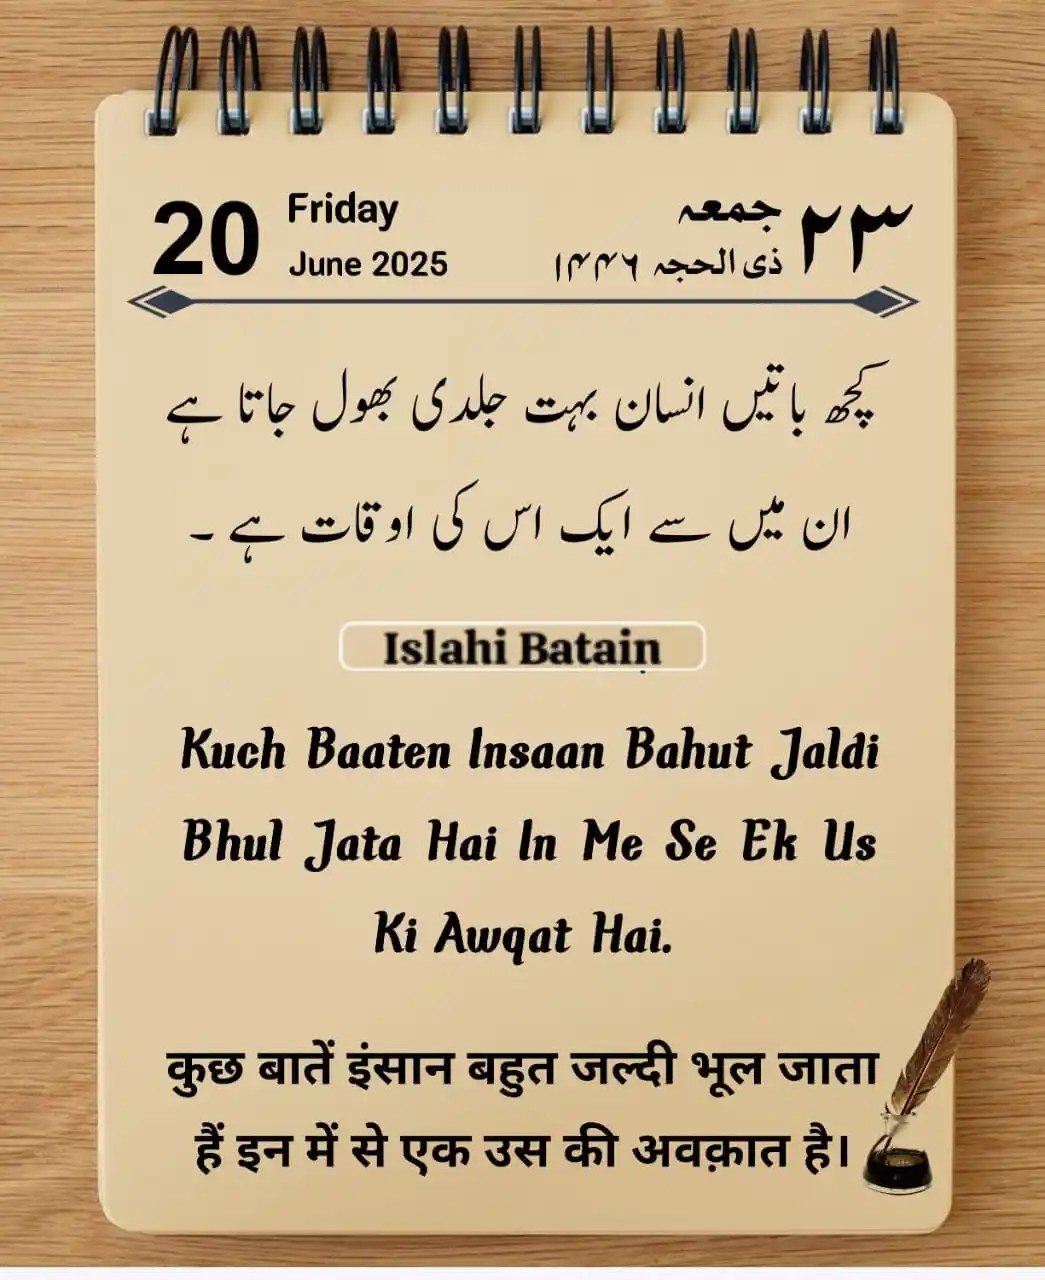 20
Friday
June 2025
۲۳
جمعہ
ذی الحجہ ۱۴۴۶
کچھ باتیں انسان بہت جلدی بھول جاتا ہے
ان میں سے ایک اس کی اوقات ہے ۔
Islahi Batain
Kuch Baaten Insaan Bahut Jaldi
Bhul Jata Hai In Me Se Ek Us
Ki Awqat Hai.
कुछ बातें इंसान बहुत जल्दी भूल जाता
हैं इन में से एक उस की अवक़ात है।